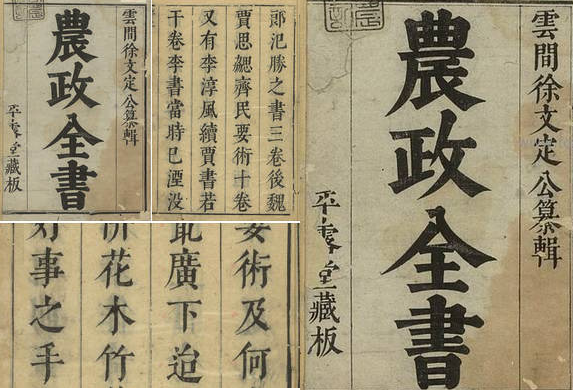 雲間徐文定公纂輯
農政全書
平露堂藏板
郎氾勝之書三卷後魏
賈思勰齊民要術十卷
又有李淳風續賈書若
干卷李書當時已湮没
要術及何
廣下迨
花木竹
好事之手
雲間徐文定公纂輯
農政全書
平露堂藏板